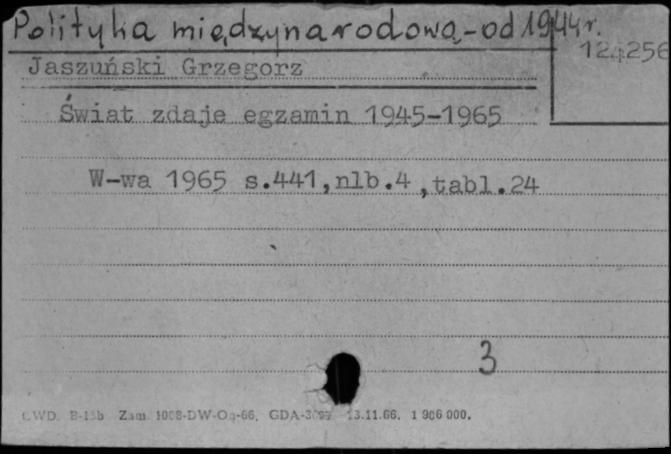 Polityka międzynarodowa - od 1944r.
124256
Jaszuński Grzegorz
Świat zdaje egzamin 1945-1965
W-wa 1965 s.441,nlb.4,tabl.24
3
CWD. B-15b Zam. 1008-DW-Og-66. GDA- 13.11.66. 1 906 000.